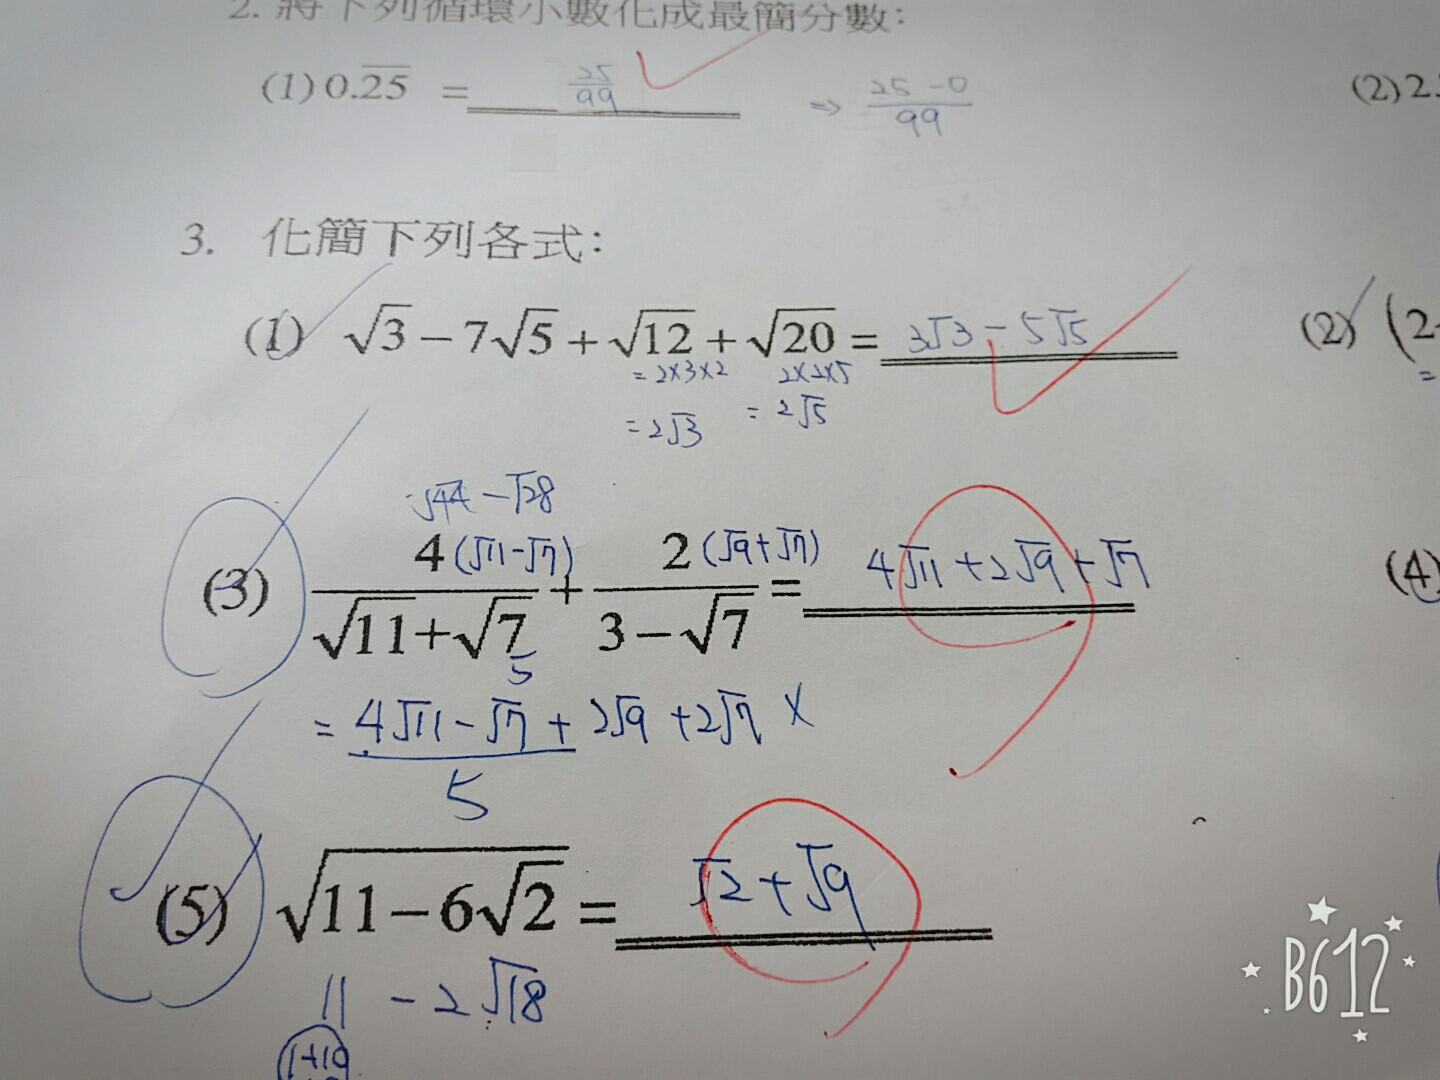 2. 將下列循環小數化成最簡分數：
(1) 0.\overline{25} = 25/99 => (25-0)/99 (2) 2.
3. 化簡下列各式：
(1) √3 - 7√5 + √12 + √20 = 3√3 - 5√5 (2) (2-
= 2×3×2 2×2×5 =
= 2√3 = 2√5
√44 - √28
4(√11-√7) 2(√9+√7)
(3) ――― + ――― = 4√11 + 2√9 + √7 (4)
√11+√7 3-√7
5
= 4√11 - √7 + 2√9 + 2√7 ×
5
(5) √(11-6√2) = √2 + √9
11 - 2√18
1+10
B612